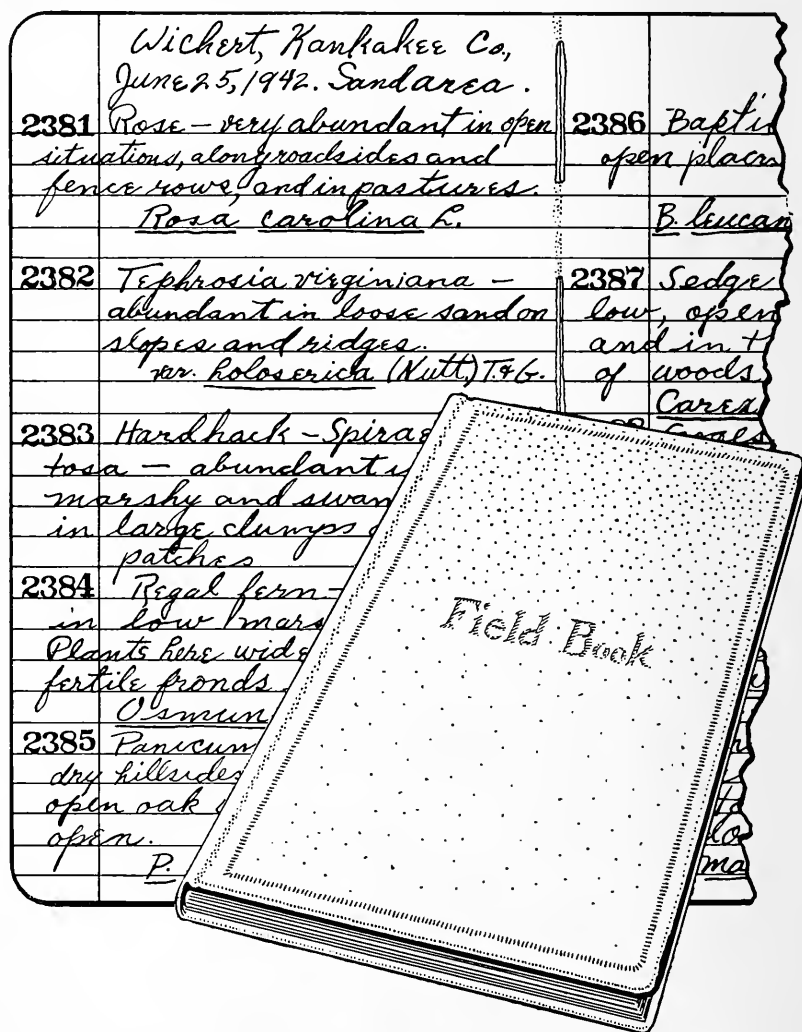 Wichert, Kankakee Co.,
June 25, 1942. Sand area.
2381 Rose – very abundant in open
situations, along roadsides and
fence rows, and in pastures.
Rosa carolina L.
2382 Tephrosia virginiana –
abundant in loose sand on
slopes and ridges.
var. holosericea (Nutt.) T.&G.
2383 Hardhack – Spirae
tosa – abundant i
marshy and swam
in large clumps
patches
2384 Regal fern –
in low mars
Plants here wide
fertile fronds
Osmun
2385 Panicum
dry hillsides
open oak
open.
P.
2386 Baptis
open place
B. leucan
2387 Sedge
low, open
and in t
of woods
Carex
Field Book
lo
ma